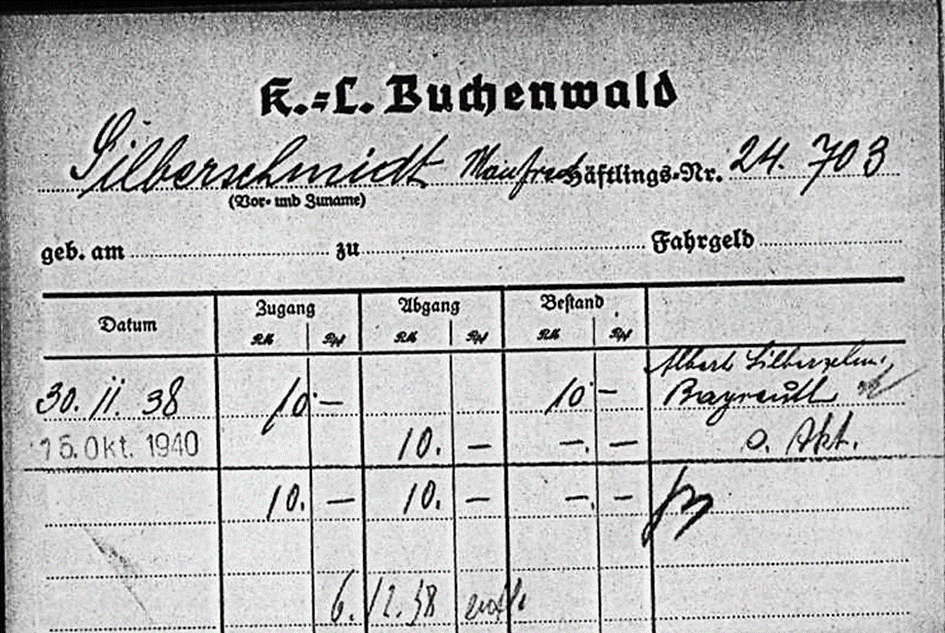 K.=L. Buchenwald
Silberschmidt Manfred Häftlings=Nr. 24.703
(Vor- und Zuname)
geb. am zu Fahrgeld
Datum Zugang Abgang Bestand
RM Rpf RM Rpf RM Rpf
Albert
30. 11. 38 10 — 10 — Bayreuth
15. Okt. 1940 10. — —. — o. Akt.
10. — 10. — —. —
6. 12. 38